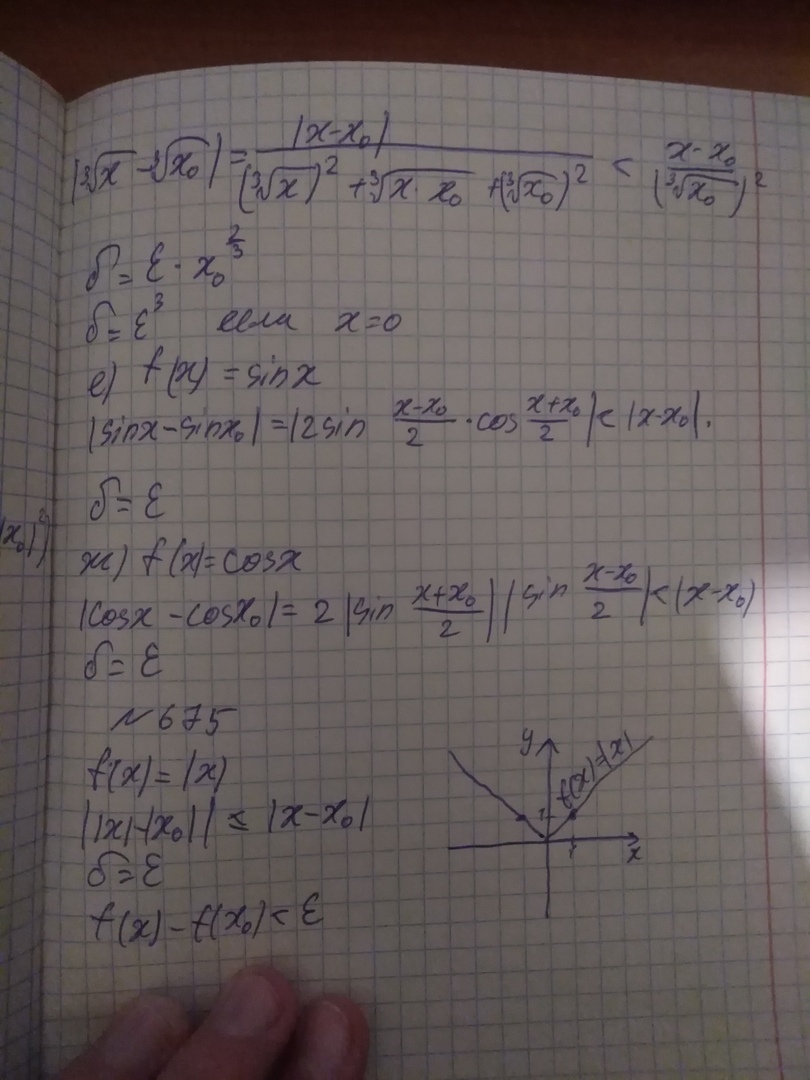 |∛x - ∛x₀| = |x-x₀| / ((∛x)² + ∛x·x₀ + (∛x₀)²) < x-x₀ / (∛x₀)²
δ = ε · x₀^(2/3)
δ = ε³ если x=0
е) f(x) = sinx
|sinx - sinx₀| = |2sin (x-x₀)/2 · cos (x+x₀)/2| < |x-x₀|.
δ = ε
x₀|²)
ж) f(x) = cosx
|cosx - cosx₀| = 2 |sin (x+x₀)/2| |sin (x-x₀)/2| < |x-x₀)
δ = ε
№675
f(x) = |x|
||x|-|x₀|| ≤ |x-x₀|
δ = ε
f(x) - f(x₀) < ε
y
f(x)=|x|
1
1
x